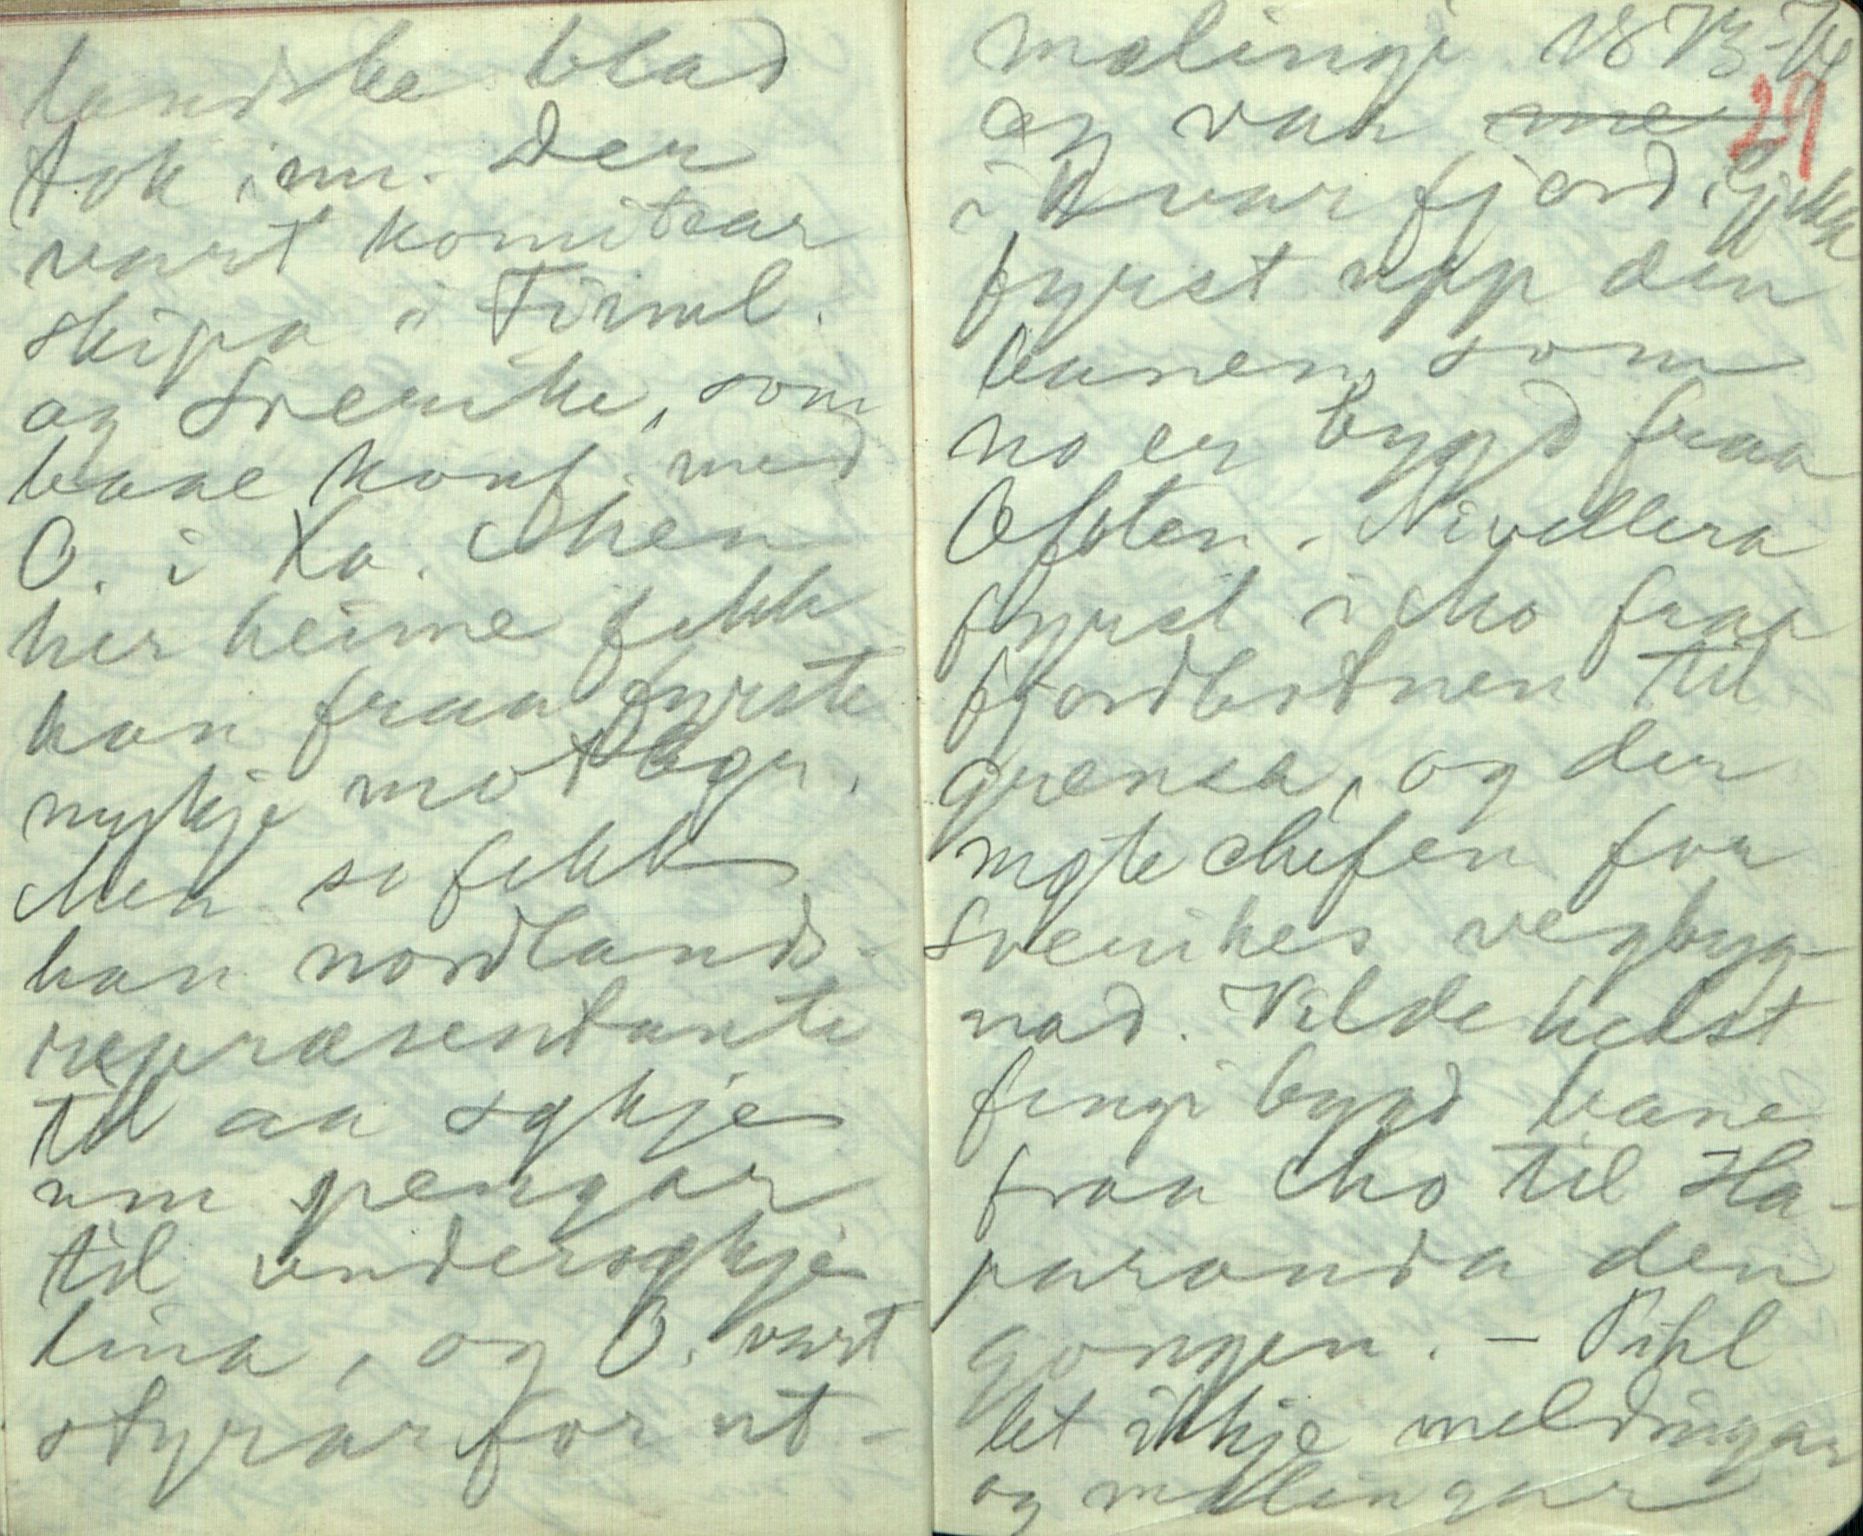 landske blad
tok inn. Der
vart komitear
skipa i Finnl.
og Sverike, som
baae konf. med
O. i Xa. Men
her heime fekk
han fraa fyrste
nyskje motbør.
Men so fekk
han nordlands-
repræsentante
til aa søkje
um pengar
til undersøkje
lina, og O. vart
styrar for ut-
malingi 1873-74
29
og var me
i Kvarfjord. Gjekk
fyrst upp den
banen, som
no er bygd fraa
Ofoten. Nivellera
fyrst i Mo fraa
fjordbotnen til
grensa, og der
møte chefen for
Sverikes vegbyg-
nad. Vilde helst
fengi bygd bane
fraa Mo til Ha-
paranda den
gongen. - Pihl
let ikkje meldingar
og malingar